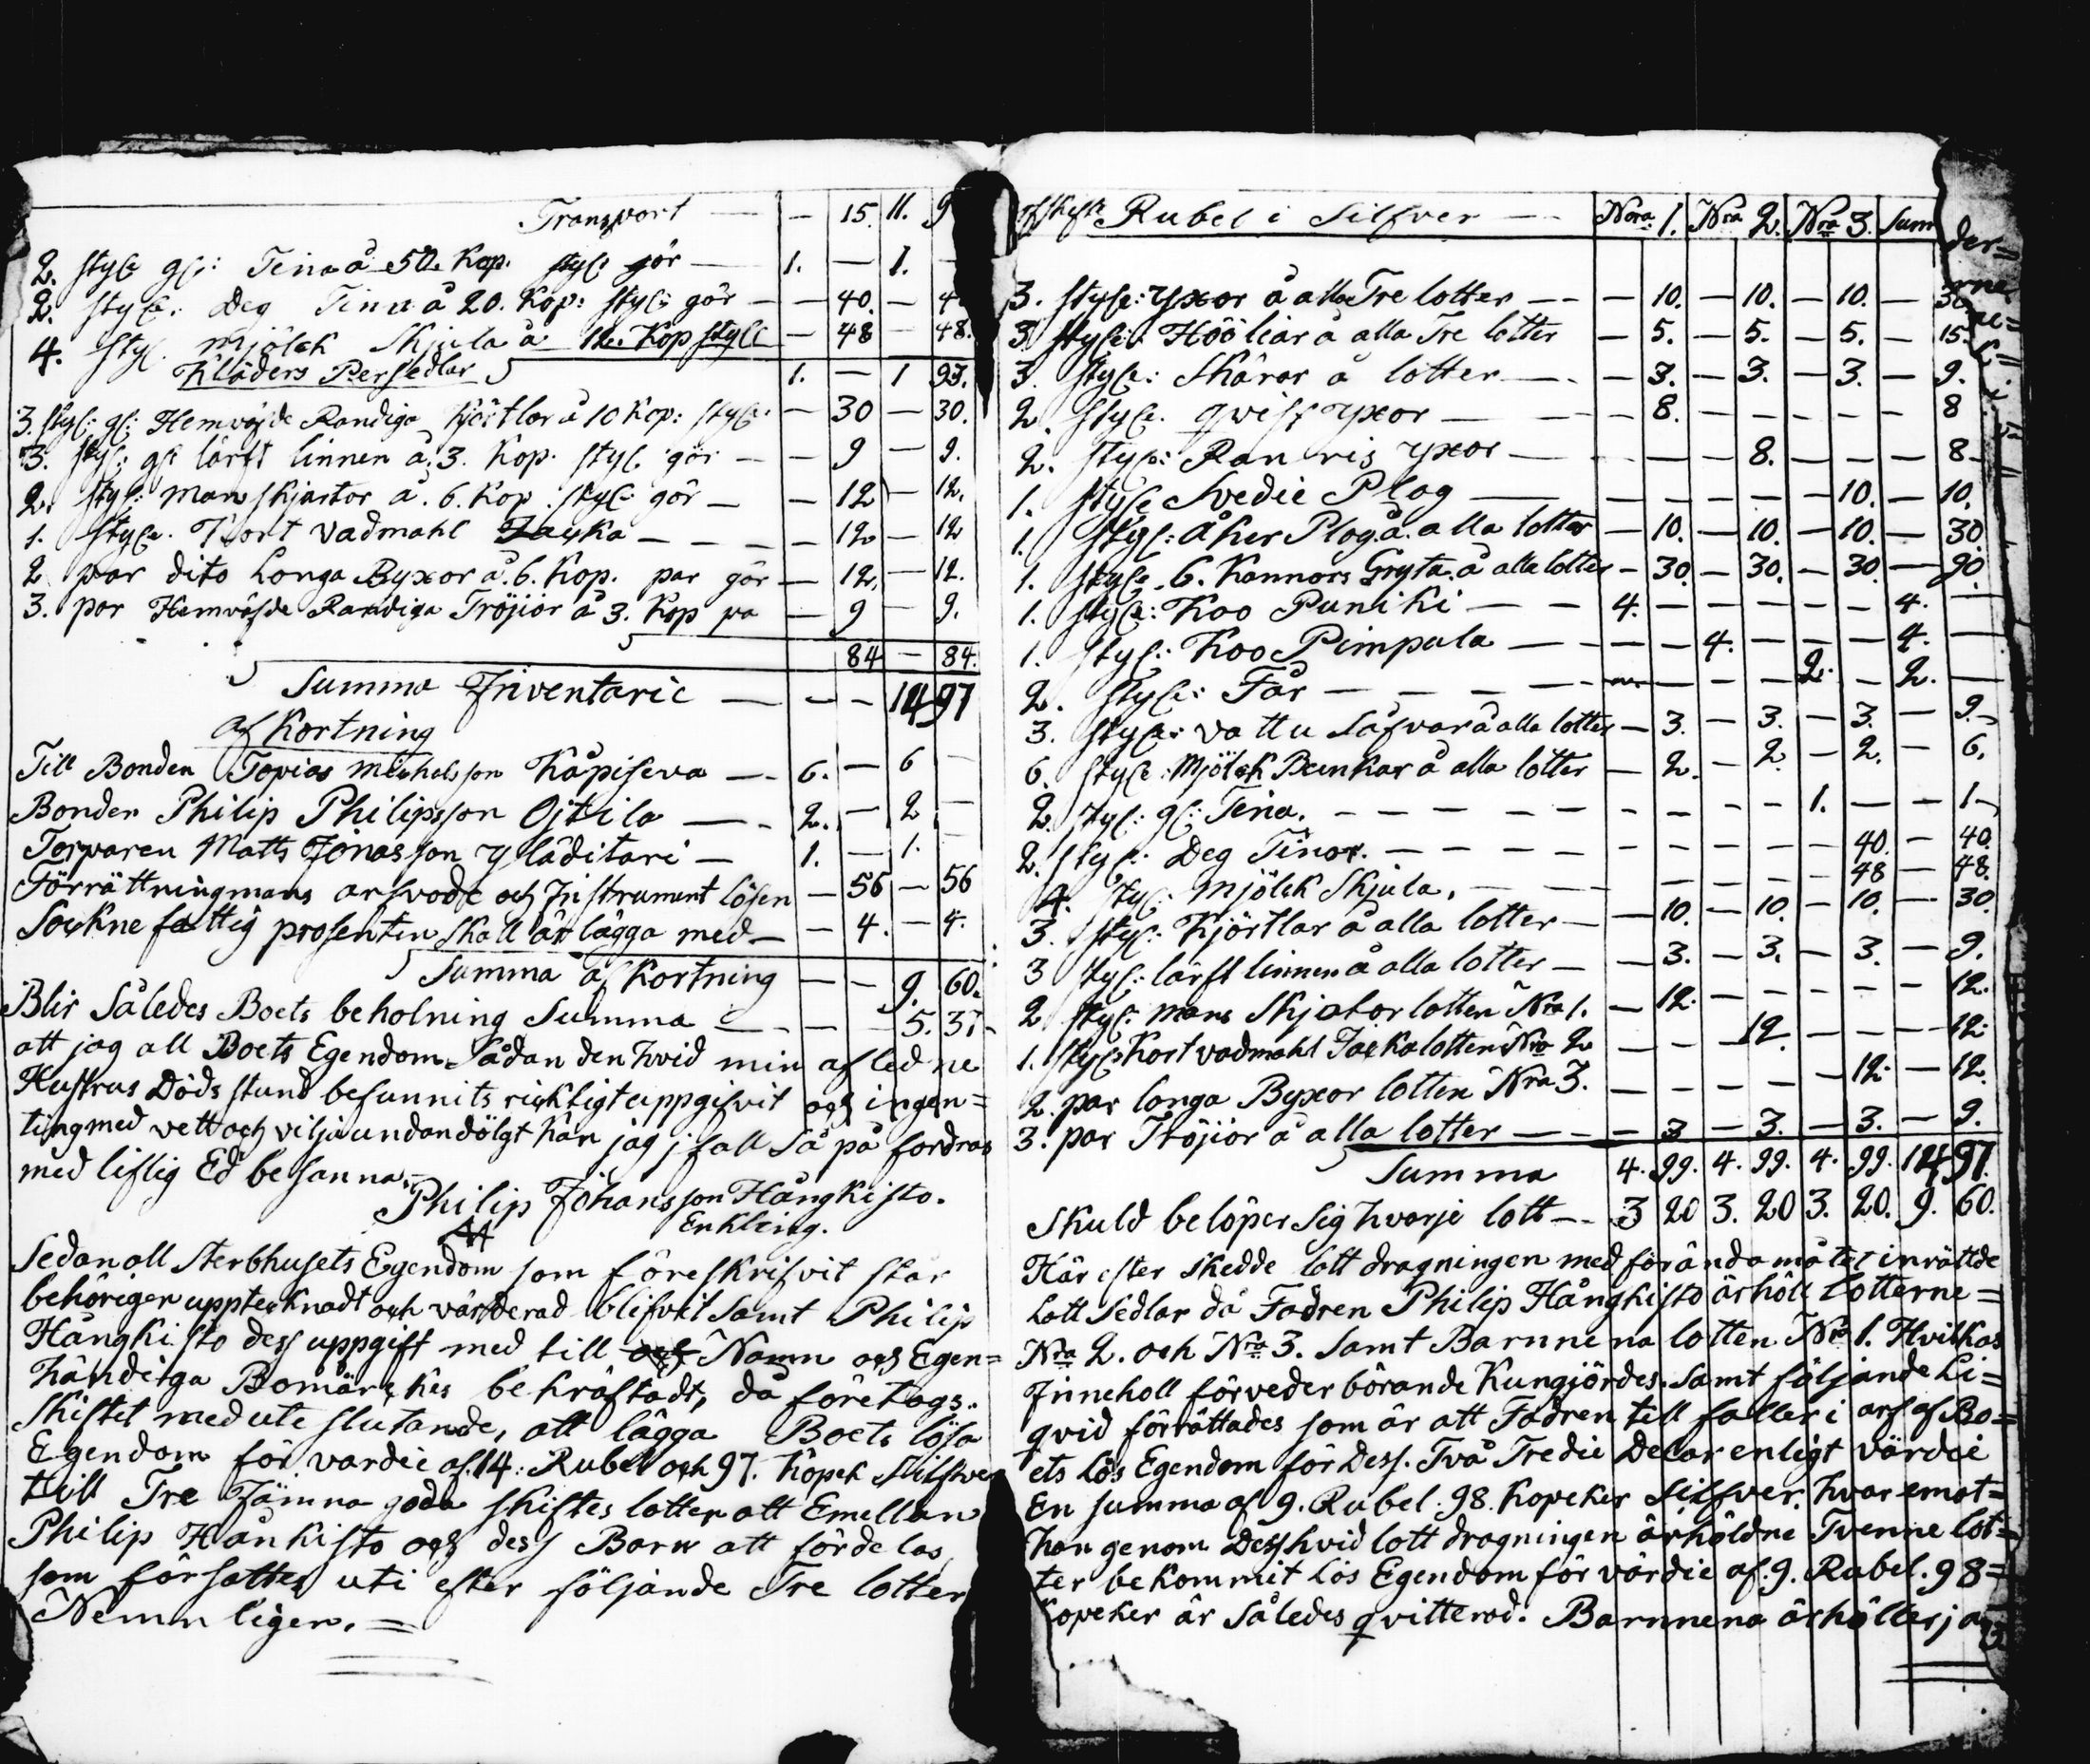 Transport — — 15. 11. 9
2. stycs gl: Tina å 50. Kop. styc gör — 1. — 1. —
2. styc: Deg Tina å 20. Kop: styc: gör — — 40. — 4
4. styc. Mjölck Skjula å 12. Kop styc — 48 — 48.
Kläders Persedlar 1. — 1 93.
3. styc: gl: Hemväfde Randiga Kjörtlar å 10 Kop: styc. — 30 — 30.
3. styc: gl: lärft linnen å. 3. Kop. styc gör — — 9 — 9.
2. styc: mans skjortor å. 6. Kop. styc: gör — — 12 — 12.
1. styc. Kort vadmahl Jacka — — — — 12 — 12
2 par dito Longa Byxor å. 6. Kop. par gör — 12. — 12.
3. par Hemväfde Randiga Tröjior å 3. Kop pa — 9 — 9.
84 — 84.
Summa Inventarie — — — 14 97
af Kortning
Till Bonden Topias Michelsson Kåpiseva — - 6. — 6 —
Bonden Philip Philipsson Ojtila — - 2. — 2 —
Torparen Matts Jonasson Yläditari — 1. — 1.
Förrättningmans arfvode och Instrument lösen — 56 — 56
Sockne fattig prosenten skall än lägga med — — 4. — 4.
Summa af Kortning — — 9. 60.
Blir Således Boets beholning Summa — - — — 5. 37 -
att jag all Boets Egendom Sådan den hvid min afledne
Hustrus Döds stund befunnits ricktigt uppgifvit och ingen=
ting med vett och vilja undandölgt kan jag j fall Så på fordras
med liflig Ed besanna.
Philip Johansson Hångkisto.
Enkling.
Sedan all Sterbhusets Egendom som föreskrifvit står
behörigen upptecknadt och värderad blifvit Samt Philip
Hångkisto dess uppgift med till och Namn och Egen=
händiga Bomärckis bekräftadt, då företogs..
Skiftet med ute slutande, att lägga Boets lösa
Egendom för vardie af. 14: Rubel och 97. Kopek Silfwer
till Tre Jämna goda skiftes lotter att Emellan
Philip Hånkisto och dess Barn att fördelas
som försattes uti efter följande Tre lotter
Nemmligen. =
Rubel i Silfver — — Nora: 1. Nra 2. Nra 3. Sum
3. styc: Yxor å alla Tre lotter — - — 10. — 10. — 10. — 30
3 styc: Hööliar å alla Tre lotter — 5. — 5. — 5. — 15.
3. styc: Skäror å lotter — - — 3. — 3. — 3. — 9.
2. styc. qvist yxor — — — 8. — — — — — 8
2. styc: Ran ris yxor — — — — 8. — — — 8 -
1. styc Svedie Plog — — — — — — 10. — 10.
1. styc: Åker Plog. å. alla lotter — 10. — 10. — 10. — 30.
1. styc. 6. Kannors Gryta. å alla lotter — 30. — 30. — 30 — 90.
1. styc: Koo Puniki — — 4. — — — — — 4. —
1. styc: Koo Pimpula — — — — 4. — — — 4. —
2. styc: Får — — — — — — — 2. — 2. —
3. styc: vattu Såfvar å alla lotter — 3. — 3. — 3. — 9. -
6. styc: Mjölck Bunkar å alla lotter — 2. — 2. — 2. — 6.
2. styc: gl: Tina. — — — — — — — — 1. — — 1 -
2. styc: Deg Tinor. — — — — — — — — 40. — 40.
4. styc: Mjölck Skjula. — — — — — — — 48 — 48.
3. styc: Kjörtlar å alla lotter — — 10. — 10. — 10. — 30.
3 styc: lärft linnen å alla lotter — — 3. — 3. — 3. — 9.
2 styc: mans Skjortor lotten Nra 1. — 12. — — — — — 12.
1. styc Kort vadmahl Jacka lotten Nra 2 — — — 12. — — — 12.
2. par longa Byxor lotten Nra 3. — — — — — 12. — 12.
3. par Tröjior å alla lotter — — — 3 — 3. — 3. — 9.
Summa 4. 99. 4. 99. 4. 99. 14 97.
Skuld belöper Sig hvarje lott — - 3 20 3. 20 3. 20. 9. 60.
Här efter skedde lott dragningen med för ändamålet inrättde
Lott Sedlar då Fadren Philip Hångkisto ärhölt lotterne=
Nra 2. och Nra 3. Samt Barnnena lotten Nra 1. Hvilkas
Inneholl förvederbörande Kungjördes. Samt följande Li=
qvid förrättades som är att Fadren till faller i arf af Bo=
ets lös Egendom för Dess. Två Tredie Delar enligt värdie
En summa af 9. Rubel. 98. Kopeker Silfver. hvar emot=
han genom Dess hvid lott dragningen ärhöldne Tvenne lot=
ter bekommit lös Egendom för värdie af. 9. Rubel. 98=
kopeker är Således qvitterad. Barnnena ärhåller j a